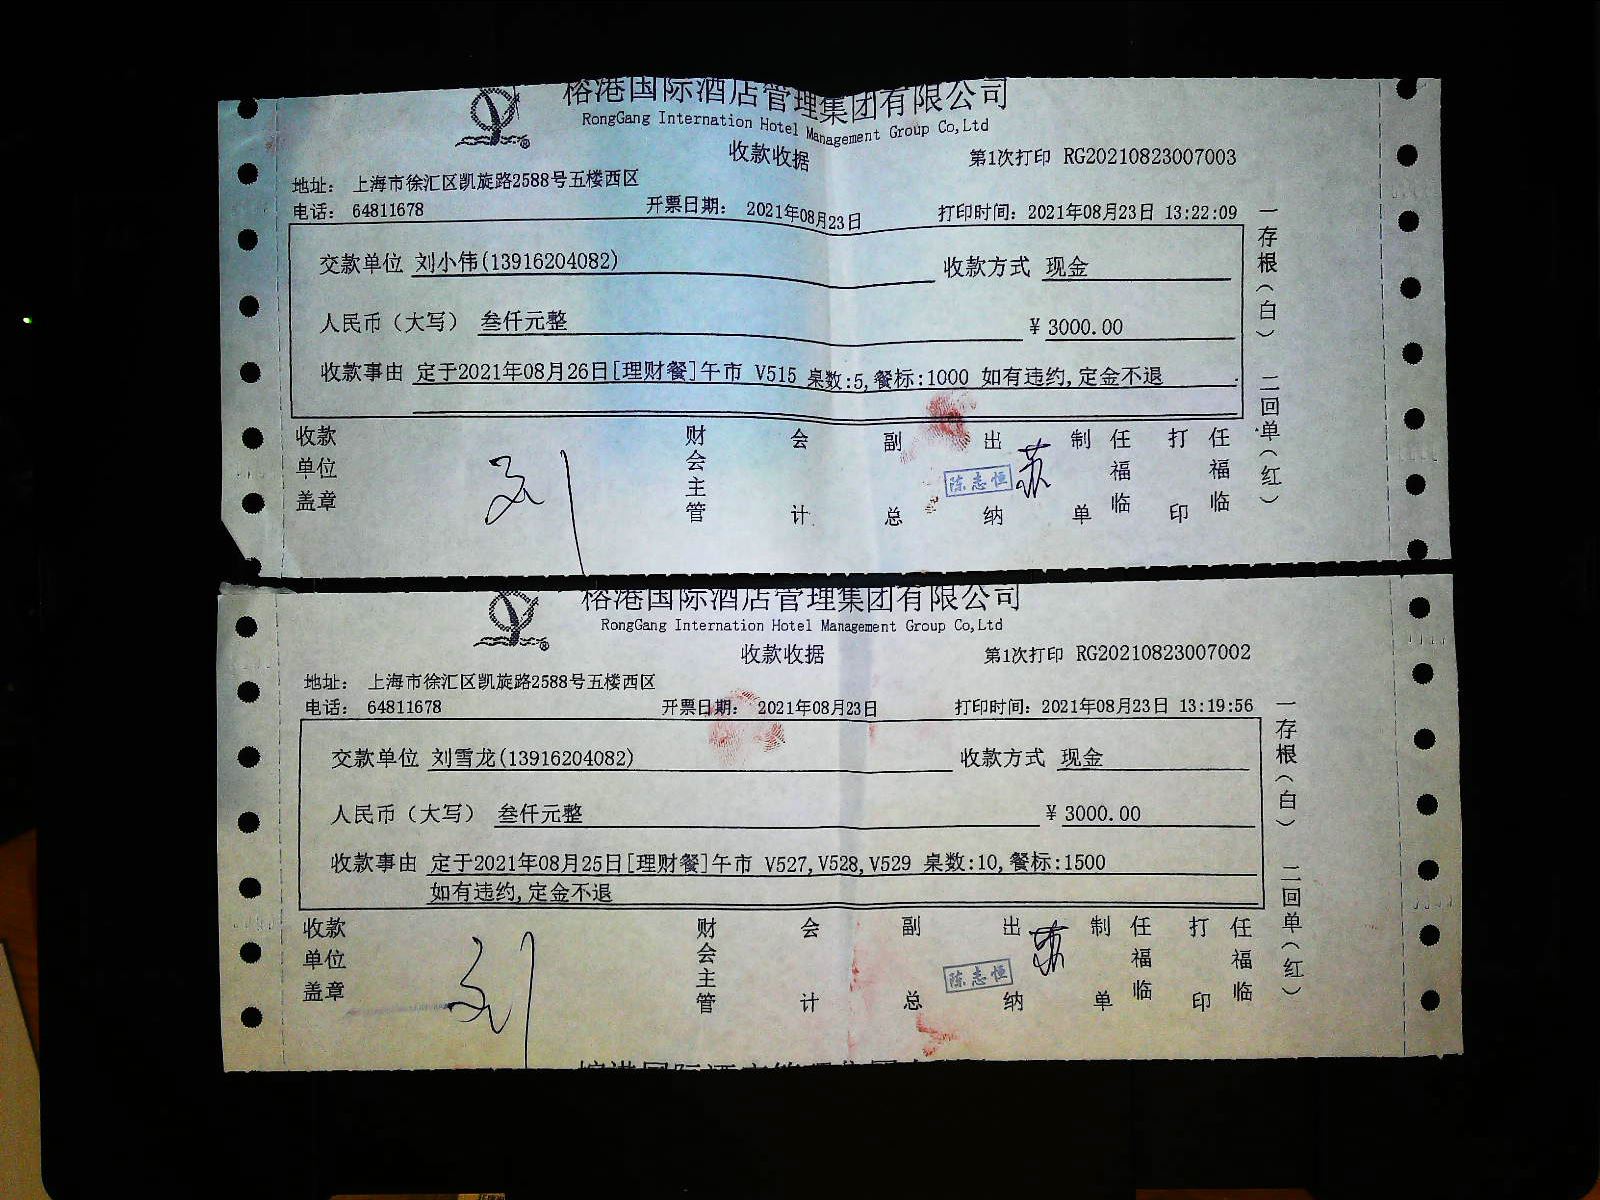 榕港国际酒店管理集团有限公司
RongGang Internation Hotel Management Group Co,Ltd
收款收据
第1次打印 RG20210823007003
地址： 上海市徐汇区凯旋路2588号五楼西区
电话： 64811678
开票日期： 2021年08月23日
打印时间：2021年08月23日 13:22:09
交款单位 刘小伟(13916204082)
收款方式 现金
人民币（大写） 叁仟元整
¥ 3000.00
收款事由 定于2021年08月26日[理财餐]午市 V515 桌数:5,餐标:1000 如有违约,定金不退
收款单位盖章
刘
财会主管
会计
副总
出纳
陈志恒
苏
制单
任福临
打印
任福临
一存根（白） 二回单（红）
榕港国际酒店管理集团有限公司
RongGang Internation Hotel Management Group Co,Ltd
收款收据
第1次打印 RG20210823007002
地址： 上海市徐汇区凯旋路2588号五楼西区
电话： 64811678
开票日期： 2021年08月23日
打印时间：2021年08月23日 13:19:56
交款单位 刘雪龙(13916204082)
收款方式 现金
人民币（大写） 叁仟元整
¥ 3000.00
收款事由 定于2021年08月25日[理财餐]午市 V527,V528,V529 桌数:10,餐标:1500
如有违约,定金不退
收款单位盖章
刘
财会主管
会计
副总
出纳
陈志恒
苏
制单
任福临
打印
任福临
一存根（白） 二回单（红）